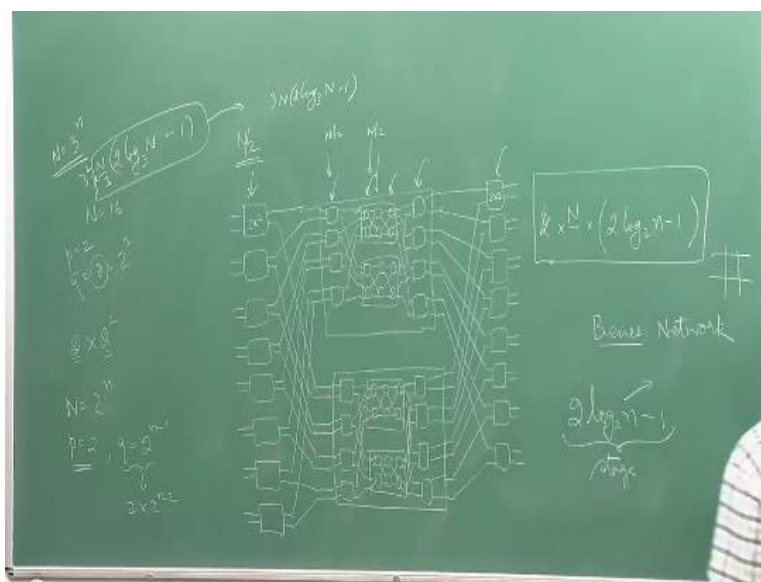 N=3^n
3×N/3(2log₃N-1)
3N(2log₃N-1)
N=16
p=2
q=8=2³
2×2²
N=2^n
p=2, q=2^(n-1)
2×2^(n-2)
N/2
N/2
N/2
2x2
2x2
2×N×(2log₂n-1)
Benes Network
2log₂n-1
stage